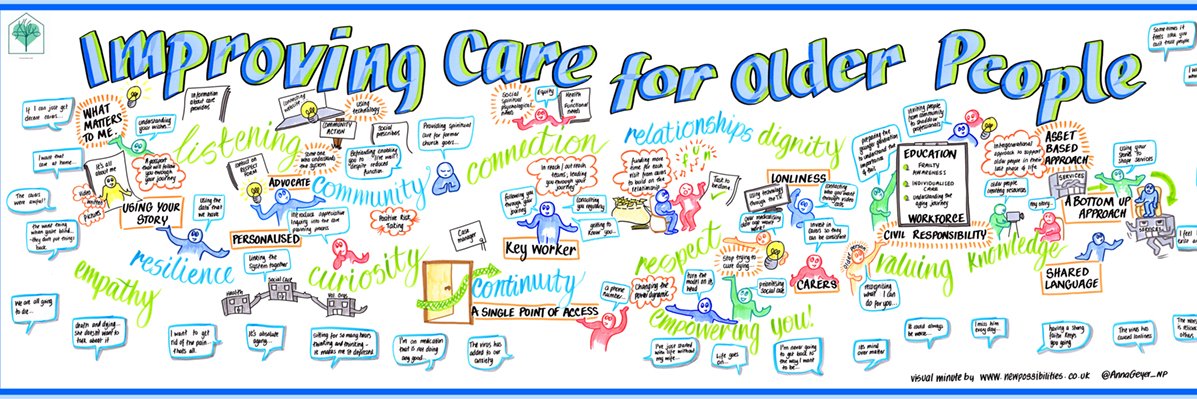 Improving Care for Older People
If I can just get
WHAT
MATTERS
TO ME.
understanding
your wishes...
Information
about care
provided
connecting
website
COMMUNITY
ACTION
using
technology
social
prescribers
Social
Spiritual
Psychological
needs
Equity
Health
&
Functional
needs
Providing spiritual
care for former
church goers...
listening
connection
relationships
dignity
Inviting people
from community
to shadow
professionals
preparing the
younger generation
to understand the
importance
EDUCATION
FRAILTY
AWARENESS
INDIVIDUALISED
CARE
understanding the
dying journey
WORKFORCE
Intergenerational
approach to support
older people in their
last phase of life
ASSET
BASED
APPROACH
Using your
stories to
shape services
Sometimes it
feels like you
can't trust people
I was that
one at home...
It's all
about
me
A passport
that will follow
you through your
journey
video
written
pictures
USING YOUR
STORY
ADVOCATE
someone who
understands
the options
Befriending enabling
you to "live well"
despite reduced
function
community
In reach / out reach
teams, leading
you through your
journey
funding more
time for each
visit from carers
to build on the
relationship
Task to
be done
LONLINESS
using technology
through the TV
connecting
who you want
through video
calls
older people
creating resources
my story
SERVICES
A BOTTOM UP
APPROACH
The carers
were awful!
using the
data that
we have
PERSONALISED
We include appreciative
inquiry into the care
planning process
Positive Risk
Taking
following you
through your
journey
consulting
you regularly
getting to
know you...
Key worker
Case
manager
invest in
carers so they
can be consistent
CIVIL RESPONSIBILITY
The worst thing
when gone blind
- they don't put things
back
resilience
Linking the
system together
Health
Social Care
Vol Orgs
curiosity
continuity
respect
Stop trying
to cure
dying...
CARERS
valuing
knowledge
SHARED
LANGUAGE
empathy
A SINGLE POINT OF ACCESS
a phone
number...
Changing the
power dynamic
turn the
model on it
head
prioritising
social care
recognising
what I can
do for you...
empowering you!
We are all going
to die...
death and dying...
she doesn't want to
talk about it
I want to get
rid of the pain...
that's all.
It's absolute
agony...
Sitting for so many hours
thinking and thinking -
it makes me so depressed
I'm on medication
that is not doing
any good...
The virus has
added to our
anxiety
I've just started
with life without
my wife...
Life goes
on...
I'm never going
to get back to
the way I want
to be...
it's mind
over matter
It could always
be worse...
I miss him
every day...
having a strong
faith keeps
you going
The virus has
caused loneliness
visual minute by www.newpossibilities.co.uk @AnnaGeyer_NP